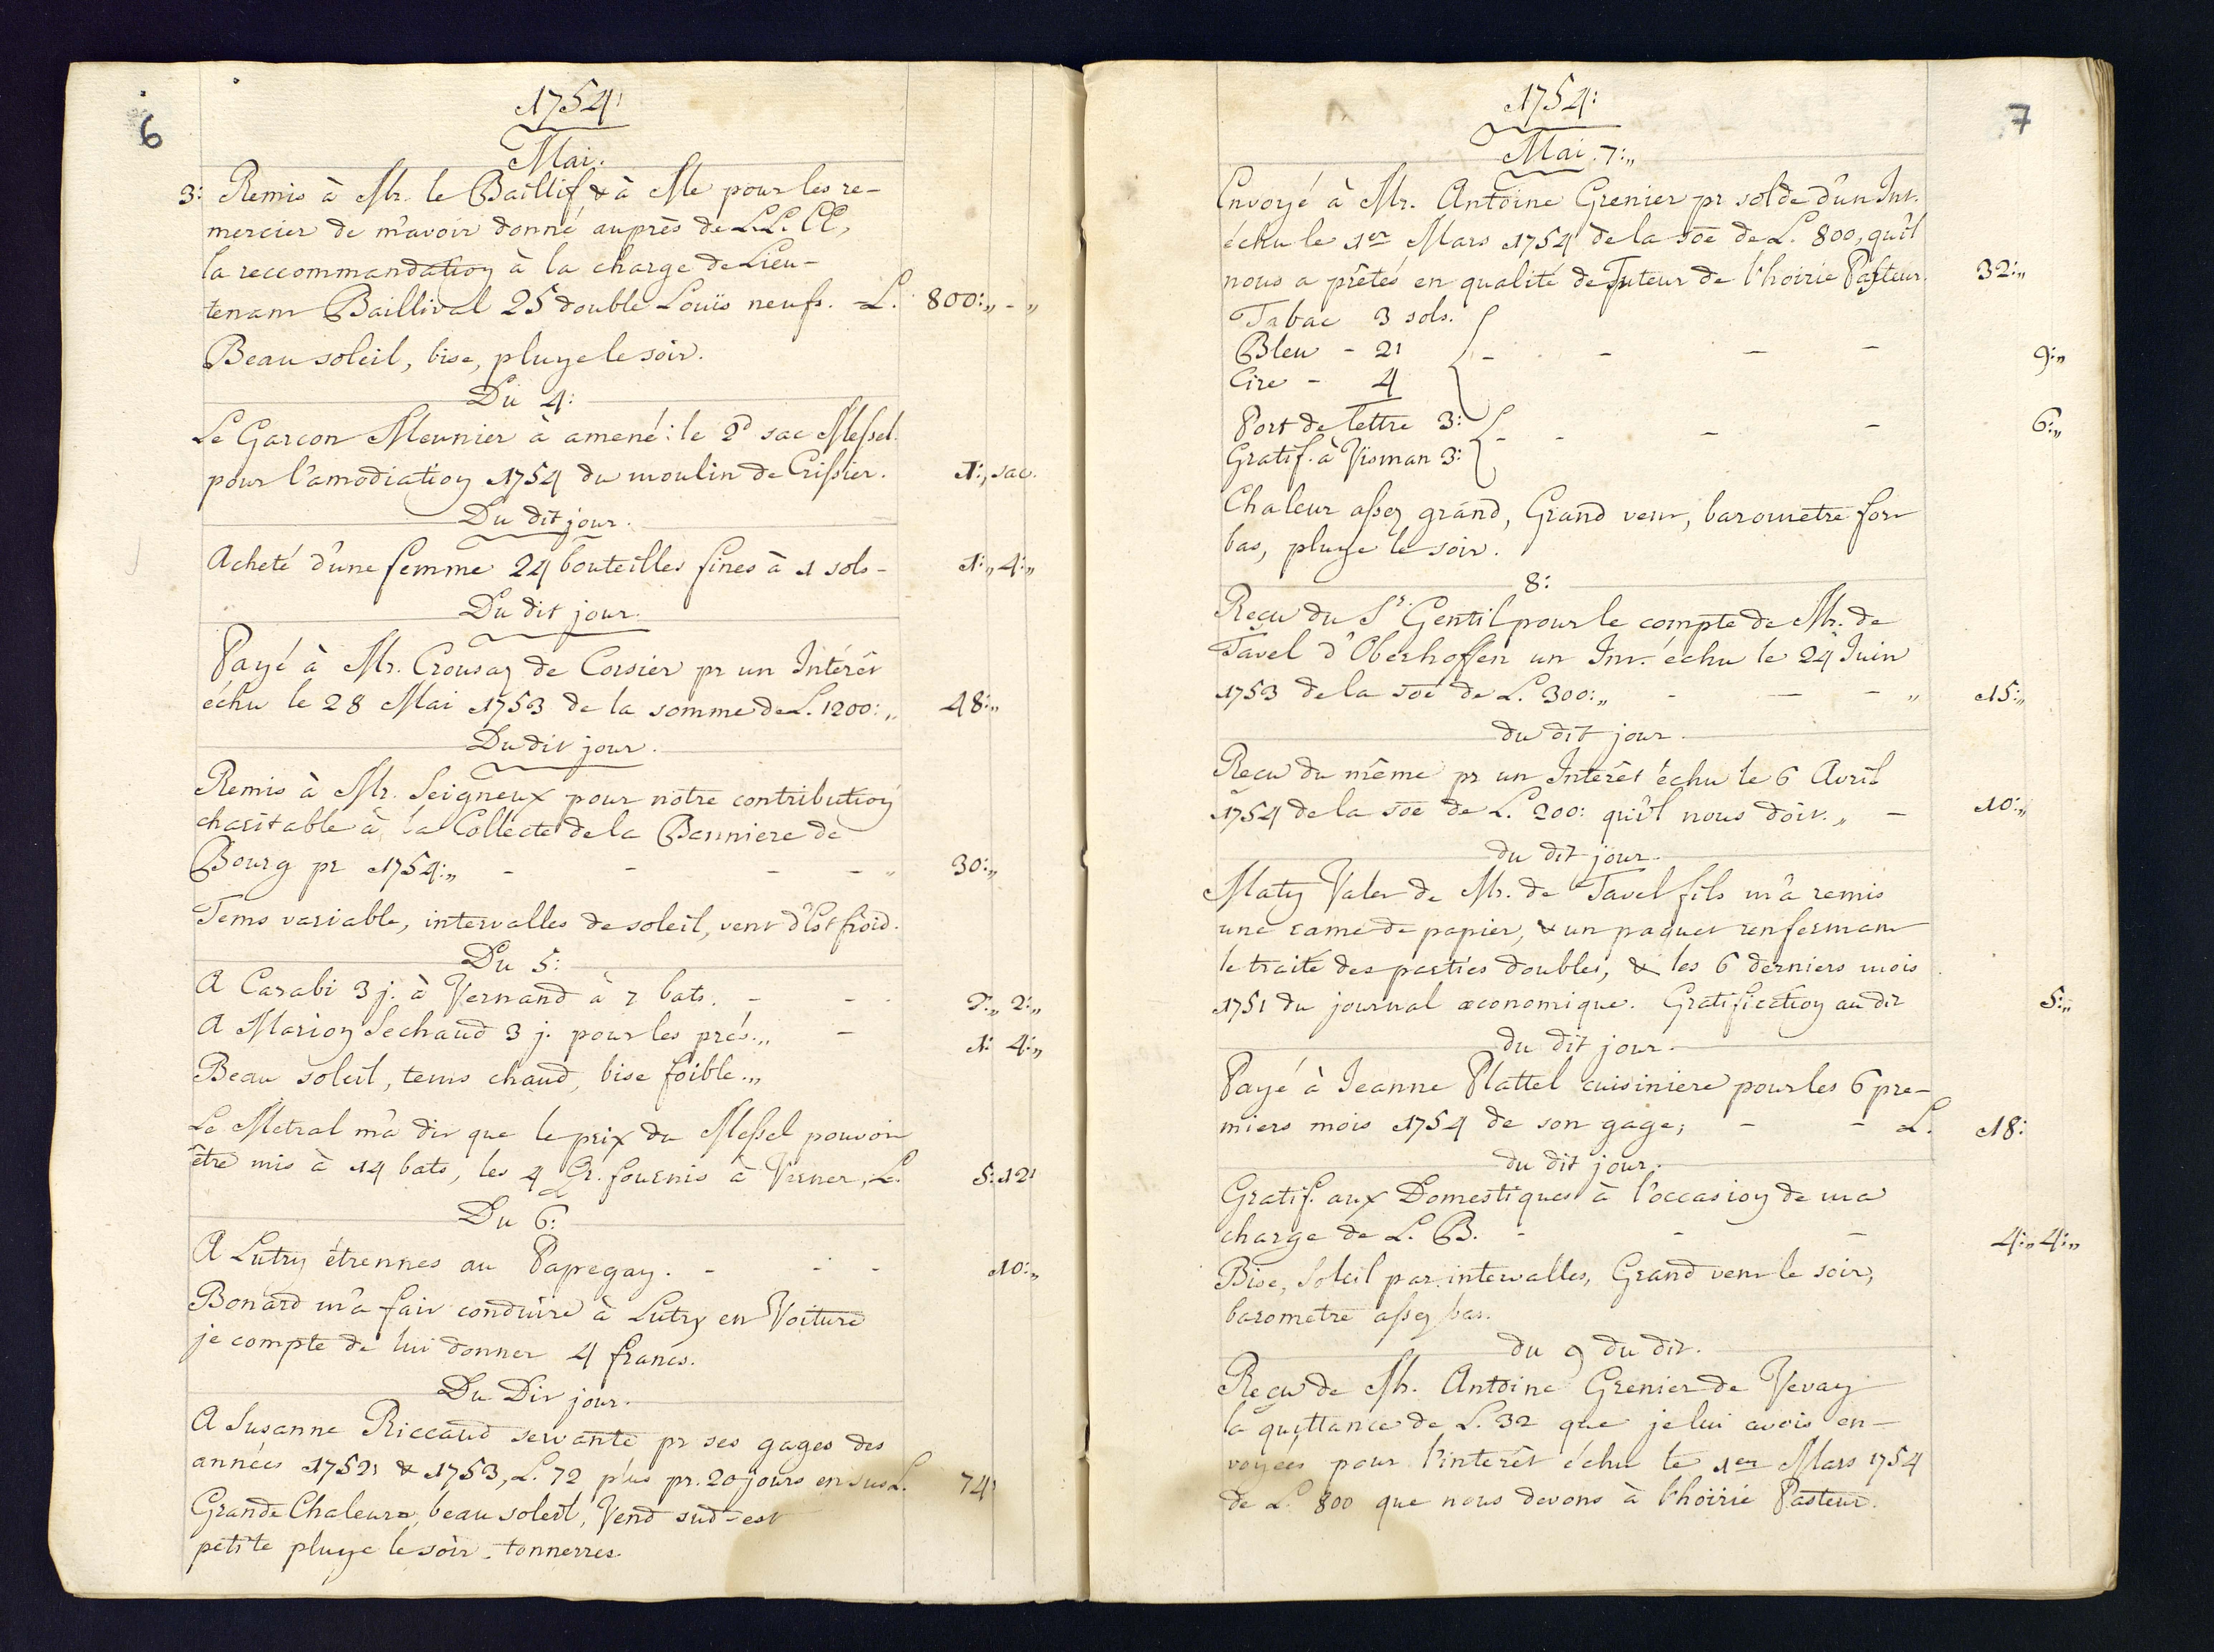 6
1754:
Mai.
3: Remis à Mr. le Baillif, & à Me pour les re-
mercier de m'avoir donné auprès de LL. EE,
la reccommandation à la charge de Lieu-
tenant Baillival 25 double Louïs neufs. L. 800:,, - ,,
Beau soleil, bise, pluye le soir.
Du 4:
Le Garcon Meunier à amené: le 2d sac Messel.
pour l'amodiation 1754 du moulin de Crissier. 1:, sac.
Du dit jour.
Acheté d'une femme 24 bouteilles fines à 1 sols - 1:,, 4:,,
Du dit jour.
Payé à Mr. Crousaz de Corsier pr un Intérêt
échu le 28 Mai 1753 de la somme de L. 1200:,, 48:,,
Du dit jour.
Remis à Mr. Seigneux pour notre contribution
charitable à la Collecte de la Banniere de
Bourg pr 1754:,, - - - - ,, 30:,,
Tems variable, intervalles de soleil, vent d'Est froid.
Du 5:
A Carabi 3 j. à Vernand à 7 bats. - - - 2:,, 2:,,
A Marion Sechaud 3 j. pour les prés.,, - 1: 4:,,
Beau soleil, tems chaud, bise foible.,,
Le Metral m'a dit que le prix du Messel pouvoit
être mis à 14 bats, les 4 Qr. fournis à Verner, L. 5: 12
Du 6:
A Lutry étrennes au Papegay. - - - 10:,,
Bonard m'a fait conduire à Lutry en Voiture
je compte de lui donner 4 francs.
Du Dit jour.
A Susanne Riccaud servante pr ses gages des
années 1752 & 1753, L. 72 plus pr. 20 jours en sus L. 74
Grande Chaleur, beau soleil, Vend sud-est
petite pluye le soir. tonnerres.
7
1754:
Mai. 7:,,
Envoyé à Mr. Antoine Grenier pr solde d'un Int.
échu le 1er Mars 1754 de la soe de L. 800, qu'il
nous a prêtés en qualité de Tuteur de l'hoirie Pasteur. 32:,,
Tabac 3 sols.
Bleu - 2 - - - - 9:,,
Cire - 4
Port de lettre 3: - - - - 6:,,
Gratif. à Visman 3:
Chaleur assez grand, Grand vent, barometre fort
bas, pluye le soir.
8:
Reçu du Sr. Gentil pour le compte de Mr. de
Tavel d'Oberhoffen un Int. échu le 24 Juin
1753 de la soe de L. 300:,, - - - ,, 15:,,
du dit jour.
Reçu du même pr un Interêt échu le 6 Avril
1754 de la soe de L. 200: qu'il nous doit. ,, - 10:,,
du dit jour.
Maty Valet de Mr. de Tavel fils m'a remis
une rame de papier, & un paquet renfermant
le traité des parties doubles, & les 6 derniers mois
1751 du journal œconomique. Gratification au dit 5:,,
du dit jour.
Payé à Jeanne Plattel cuisiniere pour les 6 pre-
miers mois 1754 de son gage; - - L. 18:
du dit jour.
Gratif. aux Domestiques à l'occasion de ma
charge de L. B. - - - 4:,, 4:,,
Bise, Soleil par intervalles, Grand vent le soir,
barometre assez bas.
du 9 du dit.
Reçu de Mr. Antoine Grenier de Vevay
la quittance de L. 32 que je lui avois en-
voyées pour l'interêt échu le 1er Mars 1754
de L. 800 que nous devons à l'hoirie Pasteur.